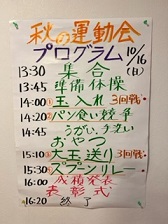 秋の運動会
プログラム 10/16
(日)
13:30 集合
13:45 準備体操
14:00 ① 玉入れ 3回戦
14:20 ② パン食い競争
14:45 うがい、手あらい
おやつ
15:10 ③ 大玉送り 3回戦
15:30 ④ スプーンリレー
16:00 成績発表
表彰式
16:20 終了